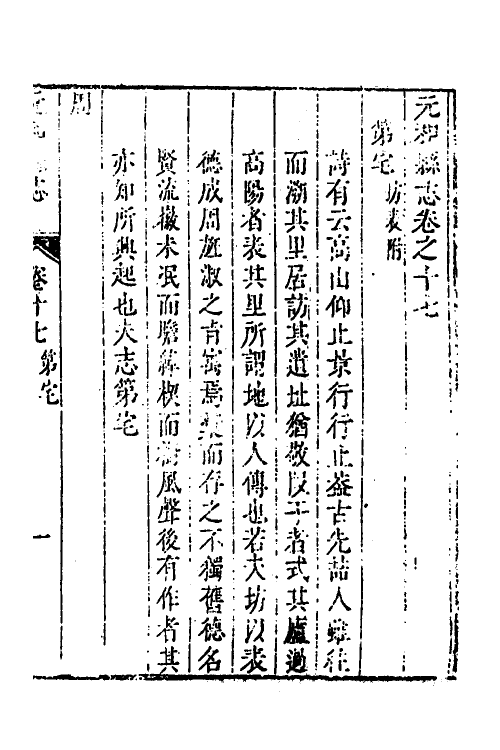 元和縣志卷之十七
第宅 坊表附
詩有云高山仰止景行行止蓋古先喆人雖往
而溯其里居訪其遺址猶敬以于者式其廬過
高陽者表其里所謂地以人傳也若夫坊以表
德成周旌淑之旨寓焉彙而存之不獨舊德名
賢流徽未泯而瞻綽楔而樹風聲後有作者其
亦知所興起也夫志第宅
周
卷十七 第宅 一